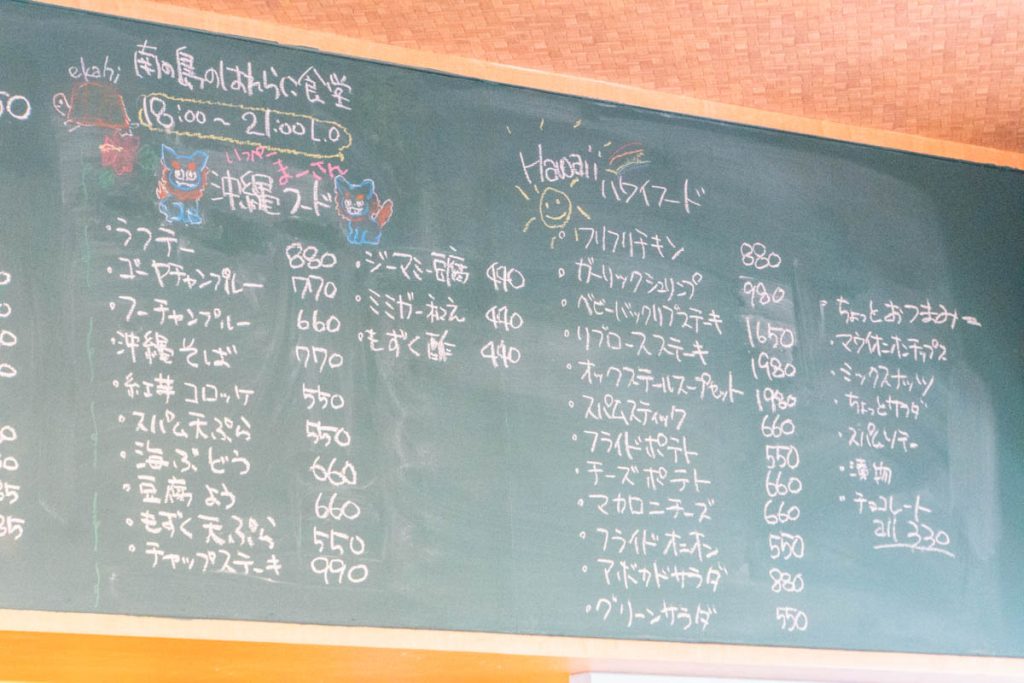 ekahi
南の島のはれらに食堂
18:00～21:00 L.O
いっぺー
まーさん
沖縄フード
・ラフテー 880
・ゴーヤチャンプルー 770
・フーチャンプルー 660
・沖縄そば 770
・紅芋コロッケ 550
・スパム天ぷら 550
・海ぶどう 660
・豆腐よう 660
・もずく天ぷら 550
・チャップステーキ 990
・ジーマミー豆腐 440
・ミミガー和え 440
・もずく酢 440
Hawaii ハワイフード
・フリフリチキン 880
・ガーリックシュリンプ 980
・ベビーバックリブステーキ 1650
・リブロースステーキ 1980
・オックステールスープセット 1980
・スパムスティック 660
・フライドポテト 550
・チーズポテト 660
・マカロニチーズ 660
・フライドオニオン 550
・アボカドサラダ 880
・グリーンサラダ 550
ちょっとおつまみ
・マウイオニオンチップス
・ミックスナッツ
・ちょっとサラダ
・スパムソテー
・漬物
・チョコレート
all 330